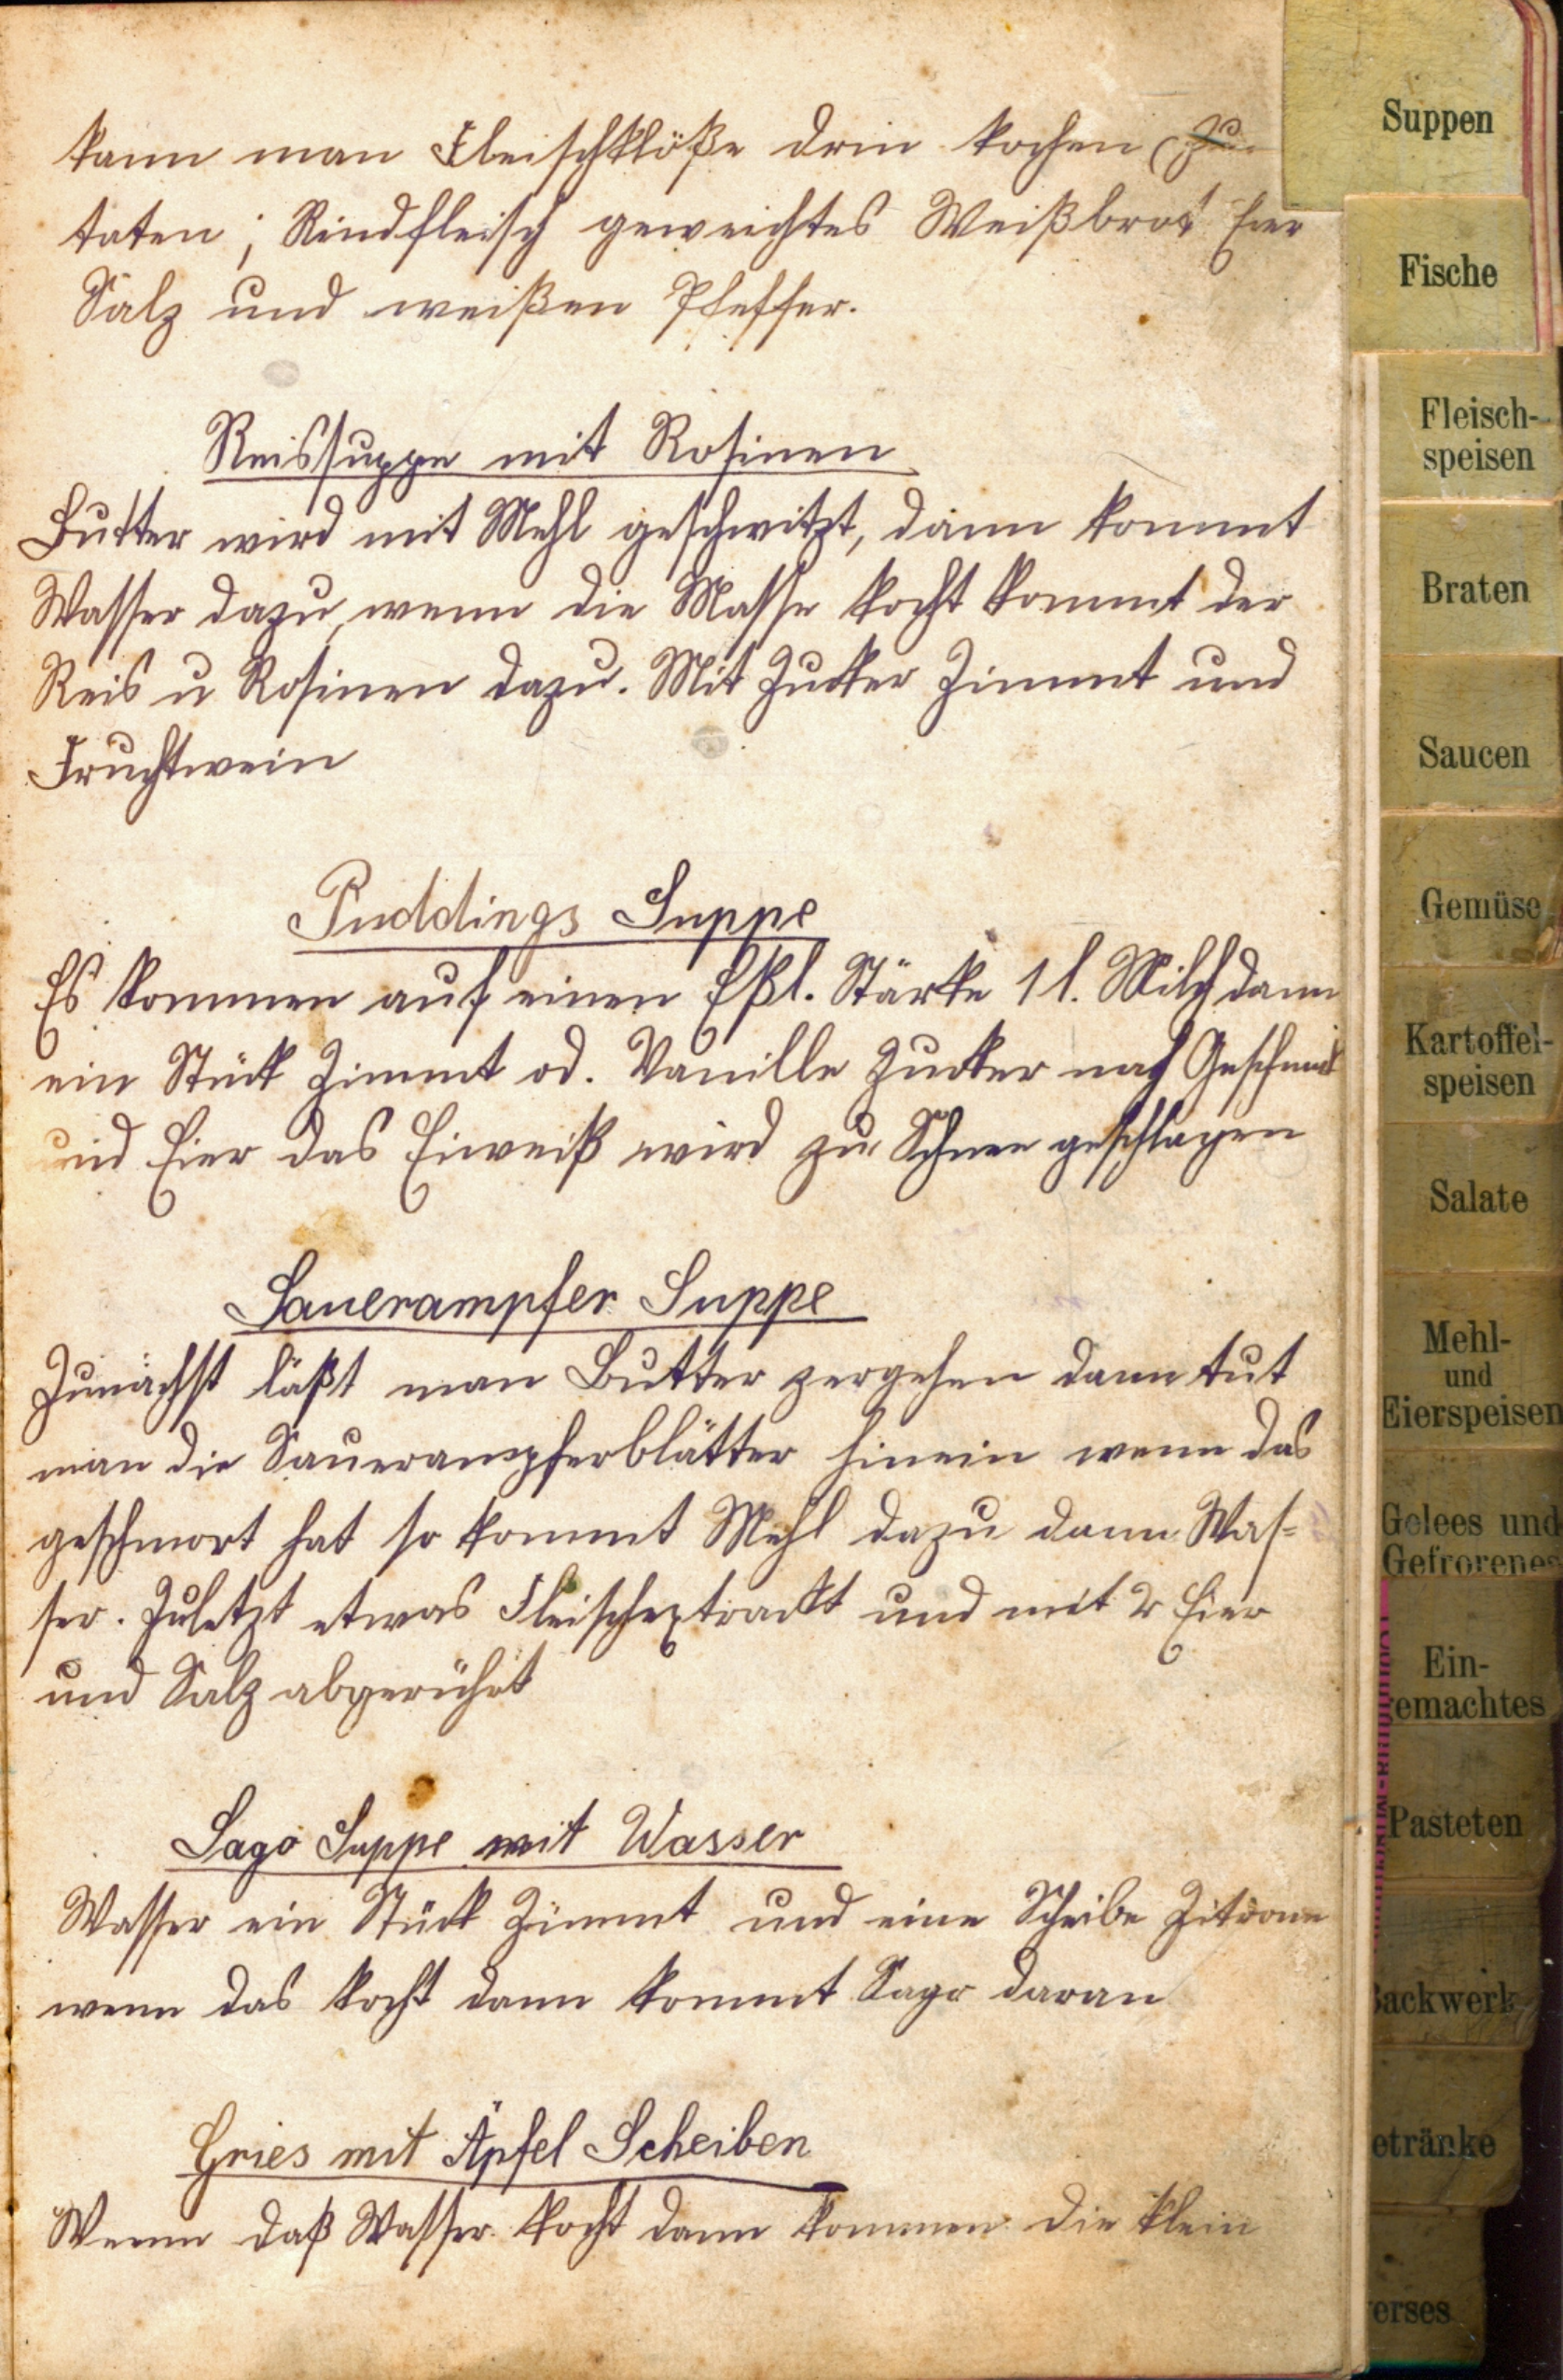 kann man Fleischklöße drin kochen (Zu-
taten; Rindfleisch geweichtes Weißbrot Eier
Salz und weißen Pfeffer.
Reissuppe mit Rosinen
Butter wird mit Mehl geschwitzt, dann kommt
Wasser dazu, wenn die Masse kocht kommt der
Reis u Rosinen dazu. Mit Zucker Zimmt und
Fruchtwein
Puddings Suppe
Es kommen auf einen Eßl. Stärke 1 l. Milch dann
ein Stück Zimmt od. Vanille Zucker nach Geschmack
und Eier das Eiweiß wird zu Schnee geschlagen
Sauerampfer Suppe
Zunächst läßt man Butter zergehen dann tut
man die Sauerampferblätter hinein wenn das
geschmort hat so kommt Mehl dazu dann Was=
ser. Zuletzt etwas Fleischextrackt und mit 2 Eier
und Salz abgerührt
Sago Suppe mit Wasser
Wasser ein Stück Zimmt und eine Scheibe Zitrone
wenn das kocht dann kommt Sago daran
Gries mit Äpfel Scheiben
Wenn daß Wasser kocht dann kommen die klein
Suppen
Fische
Fleisch-
speisen
Braten
Saucen
Gemüse
Kartoffel-
speisen
Salate
Mehl-
und
Eierspeisen
Gelees und
Gefrorenes
Ein-
gemachtes
Pasteten
Backwerk
etränke
erses